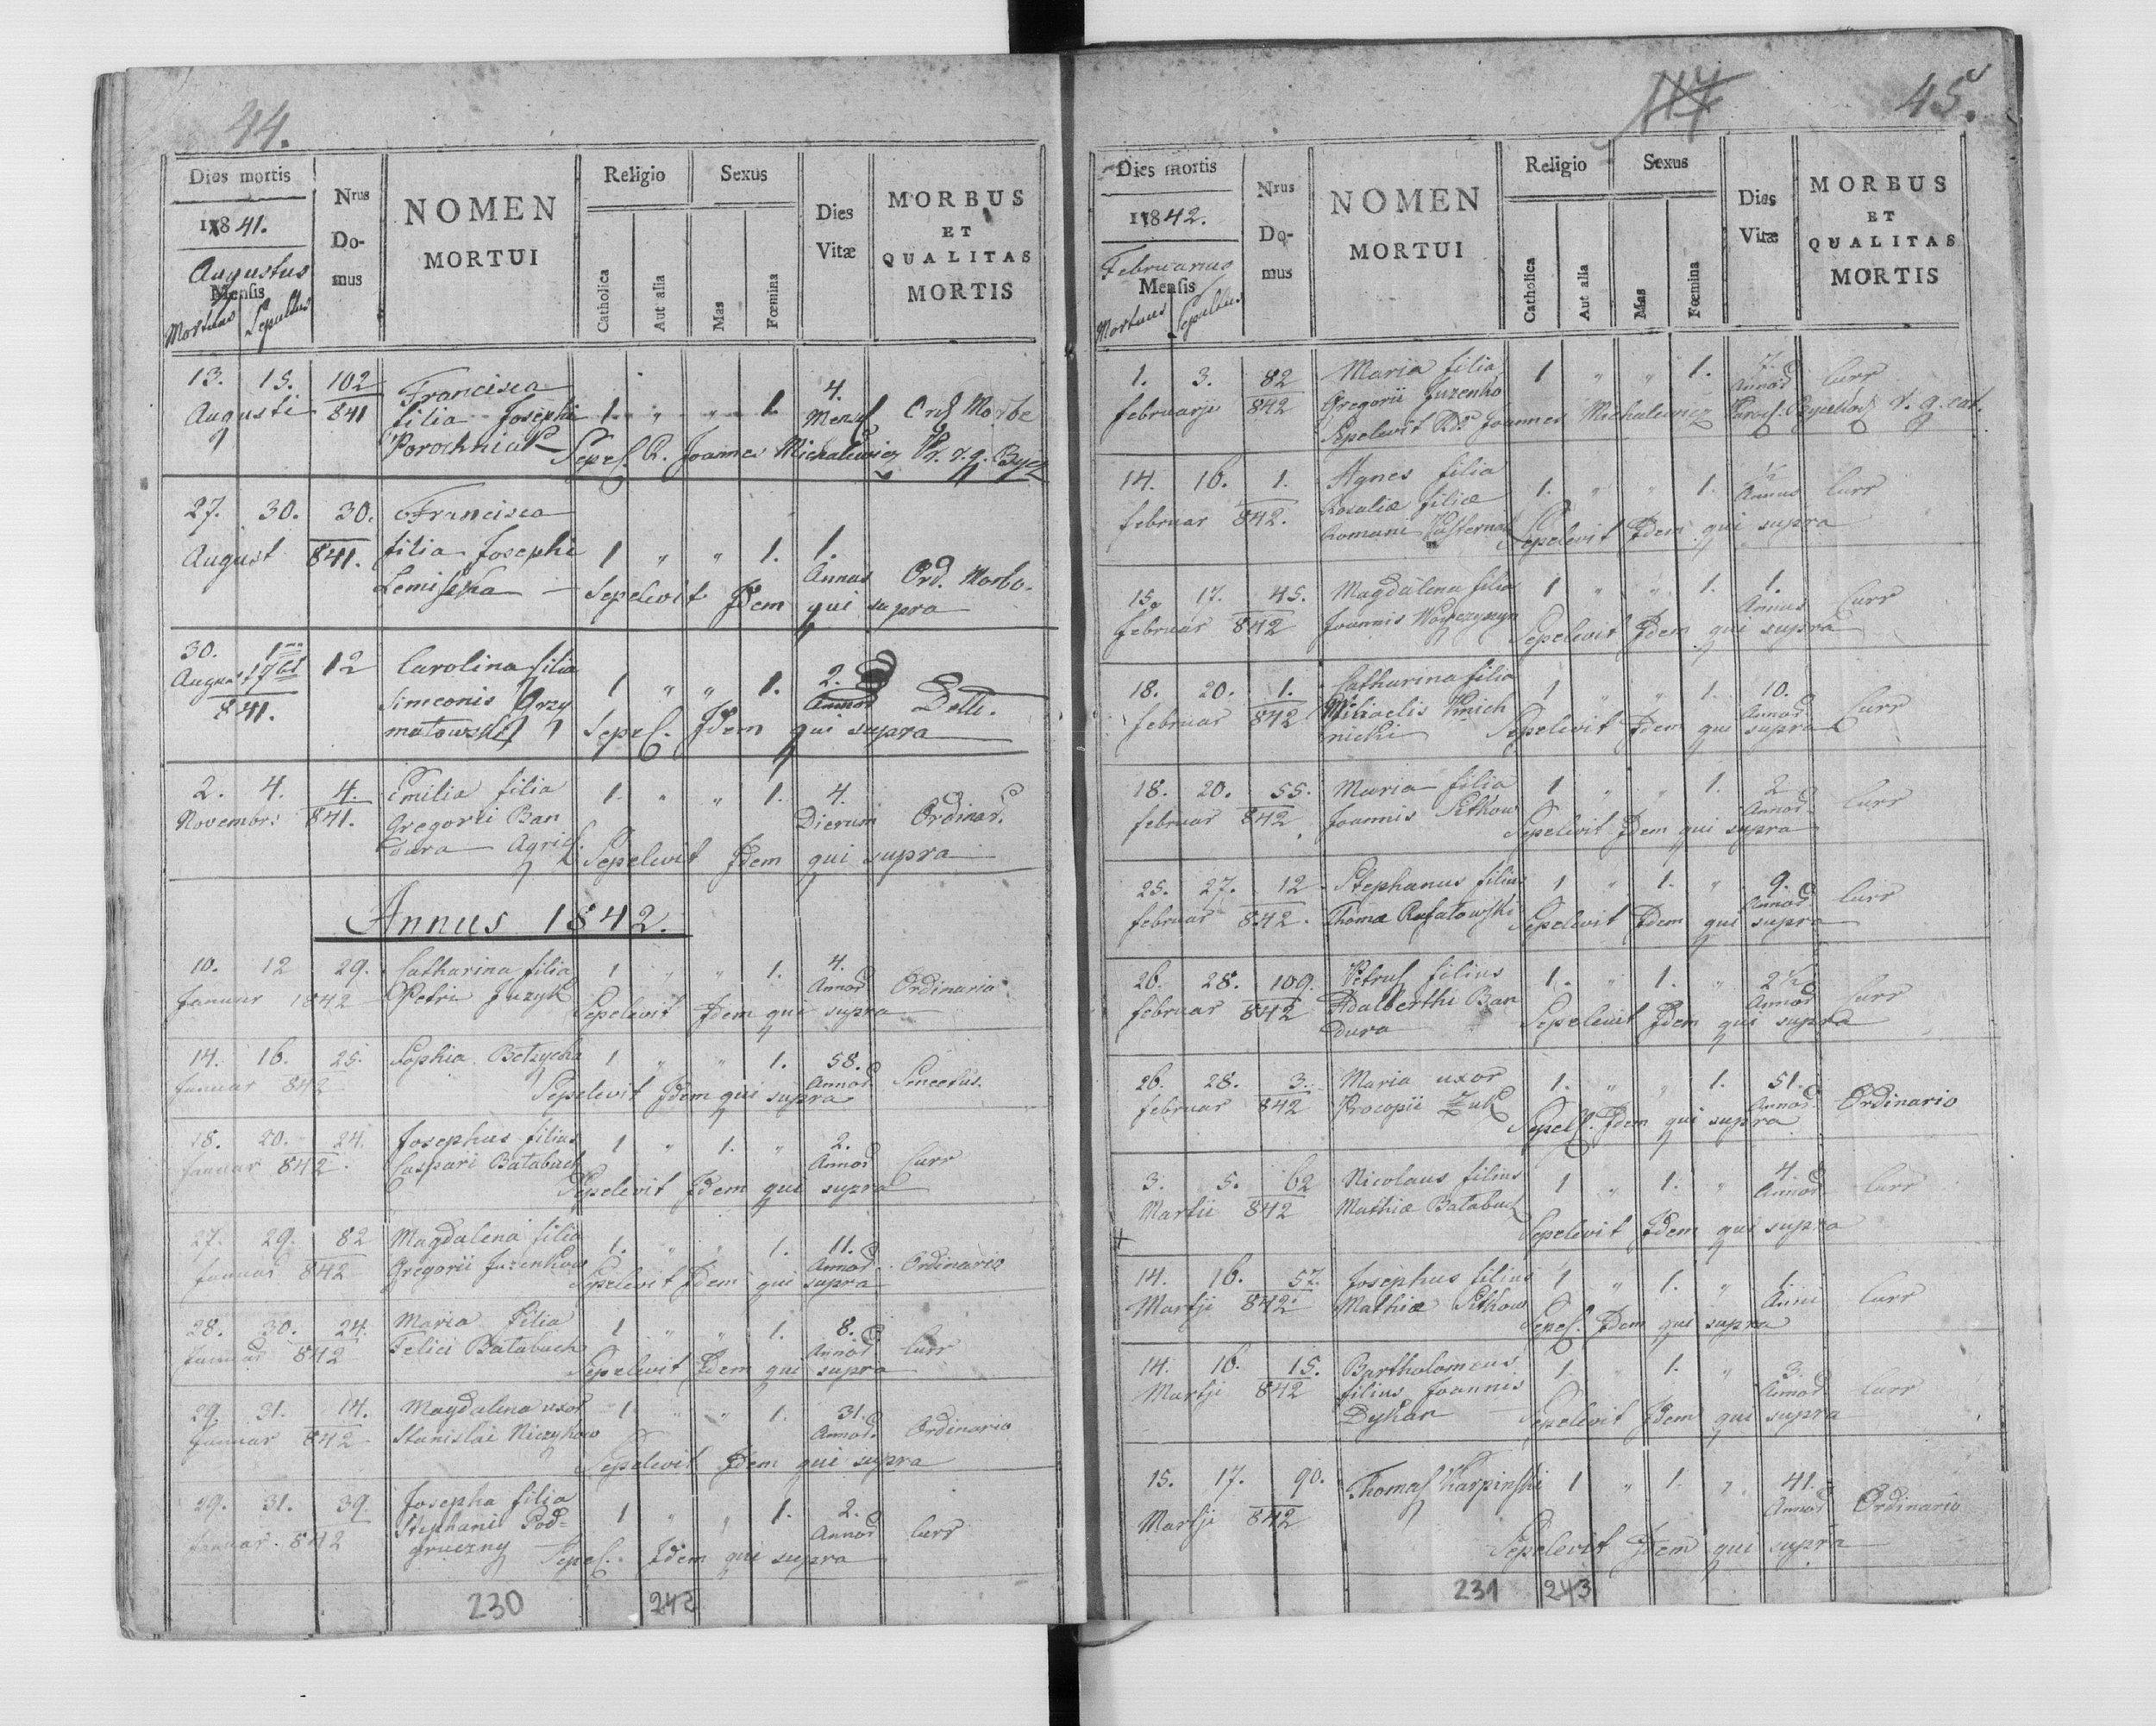 44.
Dies mortis
1841.
Augustus
Mensis
Mortuus Sepultus
Nrus Do-mus
NOMEN
MORTUI
Religio
Catholica
Aut alia
Sexus
Mas
Fœmina
Dies
Vitæ
MORBUS
ET
QUALITAS
MORTIS
13. 15. 102 Francisca
Augusti 841 filia Josephi 1 " " 1 4. Mens Ord Morbo
Porochniak Sepel. R. Joannes Michalewicz Pr. r. g. Bycz
27. 30. 30. Francisca
August 841. filia Josephi 1 " " 1. 1. Annus Ord. Morbo.
Lemiszka Sepelevit Idem qui supra
30. 1ma 12 Carolina filia
August 7bris Simeonis Grzy 1 " " 1. 2. Annor Detto.
841. matowski Sepel. Idem qui supra
2. 4. 4. Emilia filia 1. " " 1. 4.
Novembr: 841. Gregorii Ban Dierum Ordinar.
dura Agric. Sepelevit Idem qui supra
Annus 1842.
10. 12 29. Catharina filia 1 " " 1. 4. Annor Ordinario
Januar 1842 Petri Juzyk Sepelevit Idem qui supra
14. 16. 25. Sophia 1 " " 1. 58. Annor. Senectus.
Januar 842 Sepelevit Idem qui supra
18. 20. 24. Josephus filius 1 " 1. " 2. Annor Curr
Januar 842. Caspari Batabuch Sepelevit Idem qui supra
27. 29. 82 Magdalena filia 1. " " 1. 11. Annor Ordinario
Januar 842 Gregorii Juzenkow Sepelevit Idem qui supra
28. 30. 24. Maria filia 1 " " 1. 8. Annor Curr
Januar 842 Felici Batabuch Sepelevit Idem qui supra
29 31. 14. Magdalena uxor 1 " " 1. 31. Annor. Ordinario
Januar 842 Stanislai Niczykow Sepelevit Idem qui supra
29. 31. 39 Josepha filia
Januar. 842 Stephani Pod= 1 " " 1. 2. Annor Curr
gruczny Sepel. Idem qui supra
230 242
117 45.
Dies mortis
1842.
Februarius
Mensis
Mortuus Sepultus
Nrus Do-mus
NOMEN
MORTUI
Religio
Catholica
Aut alia
Sexus
Mas
Fœmina
Dies
Vitæ
MORBUS
ET
QUALITAS
MORTIS
1. 3. 82 Maria filia 1 " " 1. 7. Annor Curr
februarji 842 Gregorii Juzenko
Sepelevit Joannes Michalewicz r. g. cat.
14. 16. 1. Agnes filia
februar 842. Rosaliæ filiæ 1. " " 1. ½ Annus Curr
Romani Pasternak Sepelevit Idem qui supra
15. 17. 45. Magdalena filia 1 " " 1. 1. Annus Curr
februar 842 Joannis Woyczyszyn Sepelevit Idem qui supra
18. 20. 1. Catharina filia 1 " " 1. 10. Annor Curr
februar 842 Michaelis Kmich
nicki Sepelevit Idem qui supra
18. 20. 55. Maria filia 1 " " 1. 2 Annor. Curr
februar 842 Joannis Petkow Sepelevit Idem qui supra
25. 27. 12 Stephanus filius 1 " 1. " 9. Annor. Curr
februar 842. Thomæ Rafatowski Sepelevit Idem qui supra
26. 28. 109. Petrus filius 1. " 1. " 2½ Annor Curr
februar 842 Adalberthi Ban
dura Sepelevit Idem qui supra
26. 28. 3. Maria uxor 1. " " 1. 51. Annor. Ordinario
februar 842 Procopii Żuk Sepel. Idem qui supra
3. 5. 62 Nicolaus filius 1 " 1. " 4. Annor Curr
Martii 842 Mathiæ Batabuch
Sepelevit Idem qui supra
14. 16. 57. Josephus filius 1 " 1. " 1 Anni Curr
Martji 842. Mathiæ Petkow Sepel. Idem qui supra
14. 16. 15. Bartholomeus 1. " 1. " 3. Annor. Curr
Martji 842 filius Joannis
Dykan Sepelevit Idem qui supra
15. 17. 90. Thomas Karpinski 1 " 1. " 41. Annor Ordinario
Martji 842
Sepelevit Idem qui supra
231 243